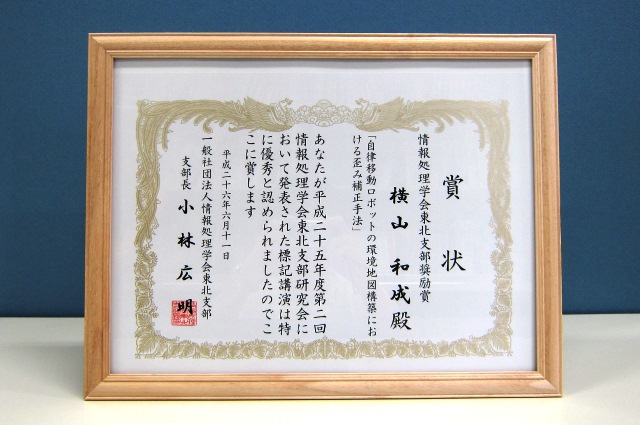 賞状
情報処理学会東北支部奨励賞
横山 和成殿
「自律移動ロボットの環境地図構築にお
ける歪み補正手法」
あなたが平成二十五年度第二回
情報処理学会東北支部研究会に
おいて発表された標記講演は特
に優秀と認められましたのでこ
こに賞します
平成二十六年六月十一日
一般社団法人情報処理学会東北支部
支部長 小林広明